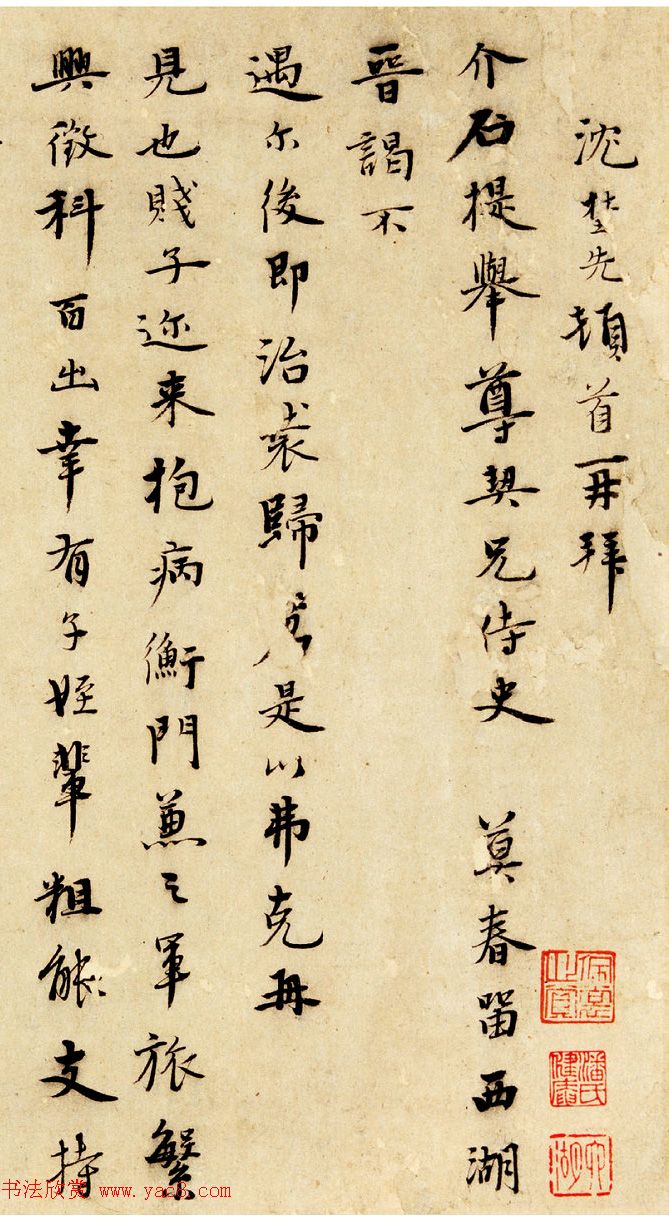 沈埜先頓首再拜
介石提舉尊契兄侍史 莫春畱西湖
晉謁不
遇尓後即治歸是以弗克再
見也賤子迩来抱病衡門兼之軍旅繁
興徵科百出幸有子姪輩粗能支持
书法欣赏 www.yac8.com